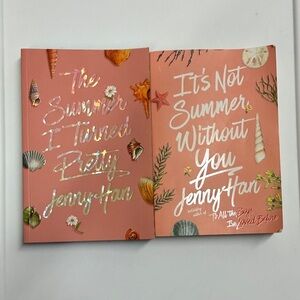 The
Summer
I Turned
Pretty
Jenny Han
It's Not
Summer
Without
You
Jenny Han
To All the Boys
I've Loved Before